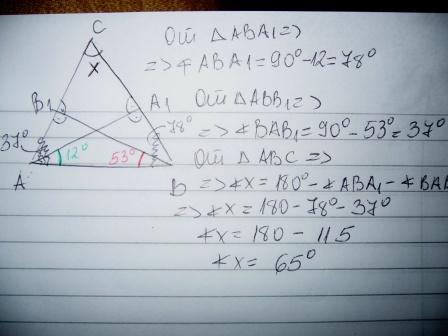 C
x
B1
A1
37°
78°
12°
53°
A
B
От △ABA1 =>
=> ∢ABA1 = 90° - 12 = 78°
От △ABB1 =>
=> ∢BAB1 = 90° - 53° = 37°
От △ABC =>
=> ∢x = 180° - ∢ABA1 - ∢BAB
=> ∢x = 180 - 78° - 37°
∢x = 180 - 115
∢x = 65°